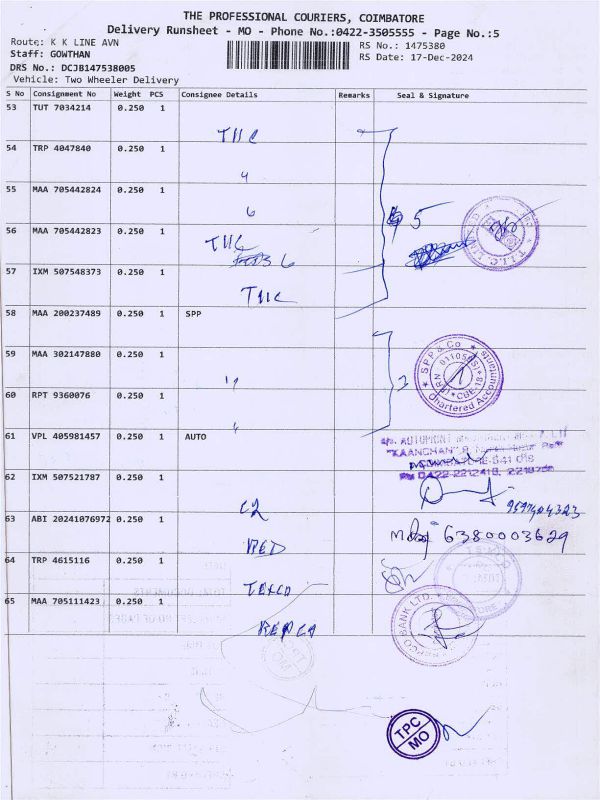 THE PROFESSIONAL COURIERS, COIMBATORE
Delivery Runsheet - MO - Phone No.:0422-3505555 - Page No.:5
Route: K K LINE AVN
RS No.: 1475380
Staff: GOWTHAN
RS Date: 17-Dec-2024
DRS No.: DCJB147538005
Vehicle: Two Wheeler Delivery
S No Consignment No Weight PCS Consignee Details Remarks Seal & Signature
53 TUT 7034214 0.250 1
TIIC
54 TRP 4047840 0.250 1
"
55 MAA 705442824 0.250 1
"
56 MAA 705442823 0.250 1
TIIC
5
57 IXM 507548373 0.250 1
TIIC
58 MAA 200237489 0.250 1 SPP
59 MAA 302147880 0.250 1
"
2
SPP & Co
Chartered Accountants
60 RPT 9360076 0.250 1
"
61 VPL 405981457 0.250 1 AUTO
62 IXM 507521787 0.250 1
C2
63 ABI 20241076972 0.250 1
RED
6380003629
64 TRP 4615116 0.250 1
TEXCO
65 MAA 705111423 0.250 1
REPCO
REPCO BANK LTD.
TPC
MO